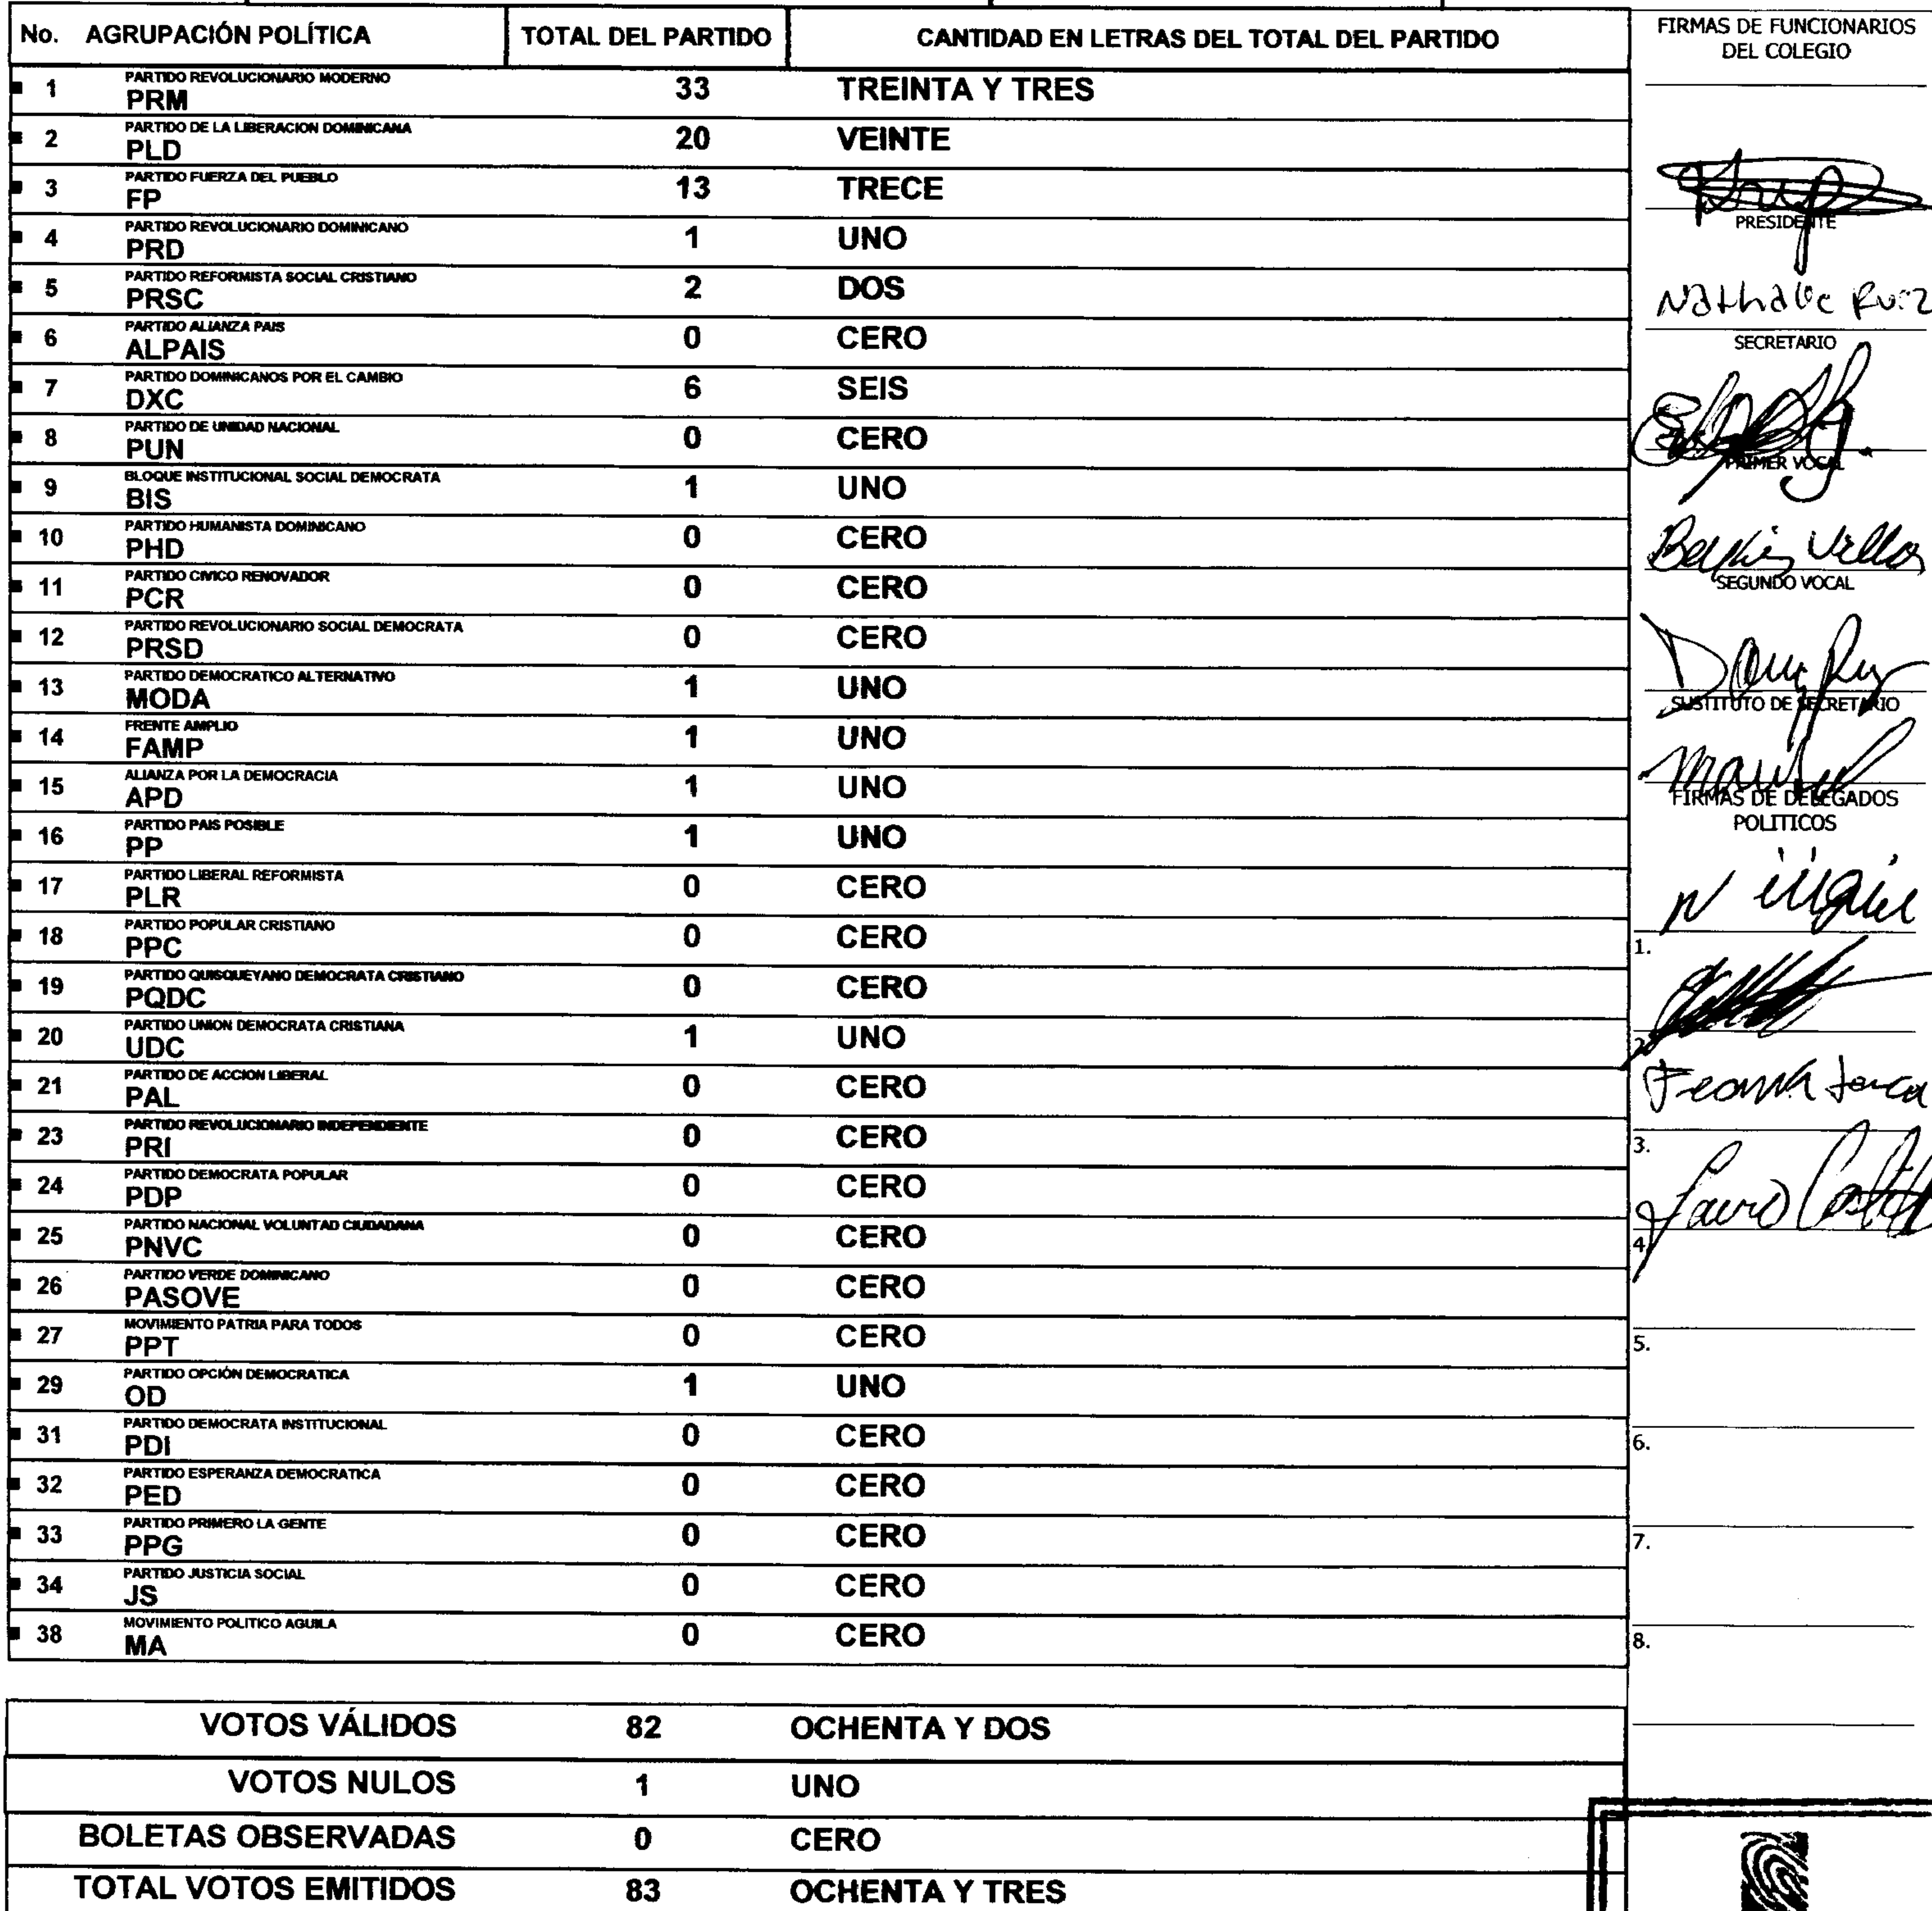 No. AGRUPACIÓN POLÍTICA TOTAL DEL PARTIDO CANTIDAD EN LETRAS DEL TOTAL DEL PARTIDO
1 PARTIDO REVOLUCIONARIO MODERNO
PRM 33 TREINTA Y TRES
2 PARTIDO DE LA LIBERACION DOMINICANA
PLD 20 VEINTE
3 PARTIDO FUERZA DEL PUEBLO
FP 13 TRECE
4 PARTIDO REVOLUCIONARIO DOMINICANO
PRD 1 UNO
5 PARTIDO REFORMISTA SOCIAL CRISTIANO
PRSC 2 DOS
6 PARTIDO ALIANZA PAIS
ALPAIS 0 CERO
7 PARTIDO DOMINICANOS POR EL CAMBIO
DXC 6 SEIS
8 PARTIDO DE UNIDAD NACIONAL
PUN 0 CERO
9 BLOQUE INSTITUCIONAL SOCIAL DEMOCRATA
BIS 1 UNO
10 PARTIDO HUMANISTA DOMINICANO
PHD 0 CERO
11 PARTIDO CIVICO RENOVADOR
PCR 0 CERO
12 PARTIDO REVOLUCIONARIO SOCIAL DEMOCRATA
PRSD 0 CERO
13 PARTIDO DEMOCRATICO ALTERNATIVO
MODA 1 UNO
14 FRENTE AMPLIO
FAMP 1 UNO
15 ALIANZA POR LA DEMOCRACIA
APD 1 UNO
16 PARTIDO PAIS POSIBLE
PP 1 UNO
17 PARTIDO LIBERAL REFORMISTA
PLR 0 CERO
18 PARTIDO POPULAR CRISTIANO
PPC 0 CERO
19 PARTIDO QUISQUEYANO DEMOCRATA CRISTIANO
PQDC 0 CERO
20 PARTIDO UNION DEMOCRATA CRISTIANA
UDC 1 UNO
21 PARTIDO DE ACCION LIBERAL
PAL 0 CERO
23 PARTIDO REVOLUCIONARIO INDEPENDIENTE
PRI 0 CERO
24 PARTIDO DEMOCRATA POPULAR
PDP 0 CERO
25 PARTIDO NACIONAL VOLUNTAD CIUDADANA
PNVC 0 CERO
26 PARTIDO VERDE DOMINICANO
PASOVE 0 CERO
27 MOVIMIENTO PATRIA PARA TODOS
PPT 0 CERO
29 PARTIDO OPCIÓN DEMOCRATICA
OD 1 UNO
31 PARTIDO DEMOCRATA INSTITUCIONAL
PDI 0 CERO
32 PARTIDO ESPERANZA DEMOCRATICA
PED 0 CERO
33 PARTIDO PRIMERO LA GENTE
PPG 0 CERO
34 PARTIDO JUSTICIA SOCIAL
JS 0 CERO
38 MOVIMIENTO POLITICO AGUILA
MA 0 CERO
VOTOS VÁLIDOS 82 OCHENTA Y DOS
VOTOS NULOS 1 UNO
BOLETAS OBSERVADAS 0 CERO
TOTAL VOTOS EMITIDOS 83 OCHENTA Y TRES
FIRMAS DE FUNCIONARIOS
DEL COLEGIO
PRESIDENTE
SECRETARIO
PRIMER VOCAL
SEGUNDO VOCAL
SUSTITUTO DE SECRETARIO
FIRMAS DE DELEGADOS
POLITICOS
1.
2.
3.
4.
5.
6.
7.
8.